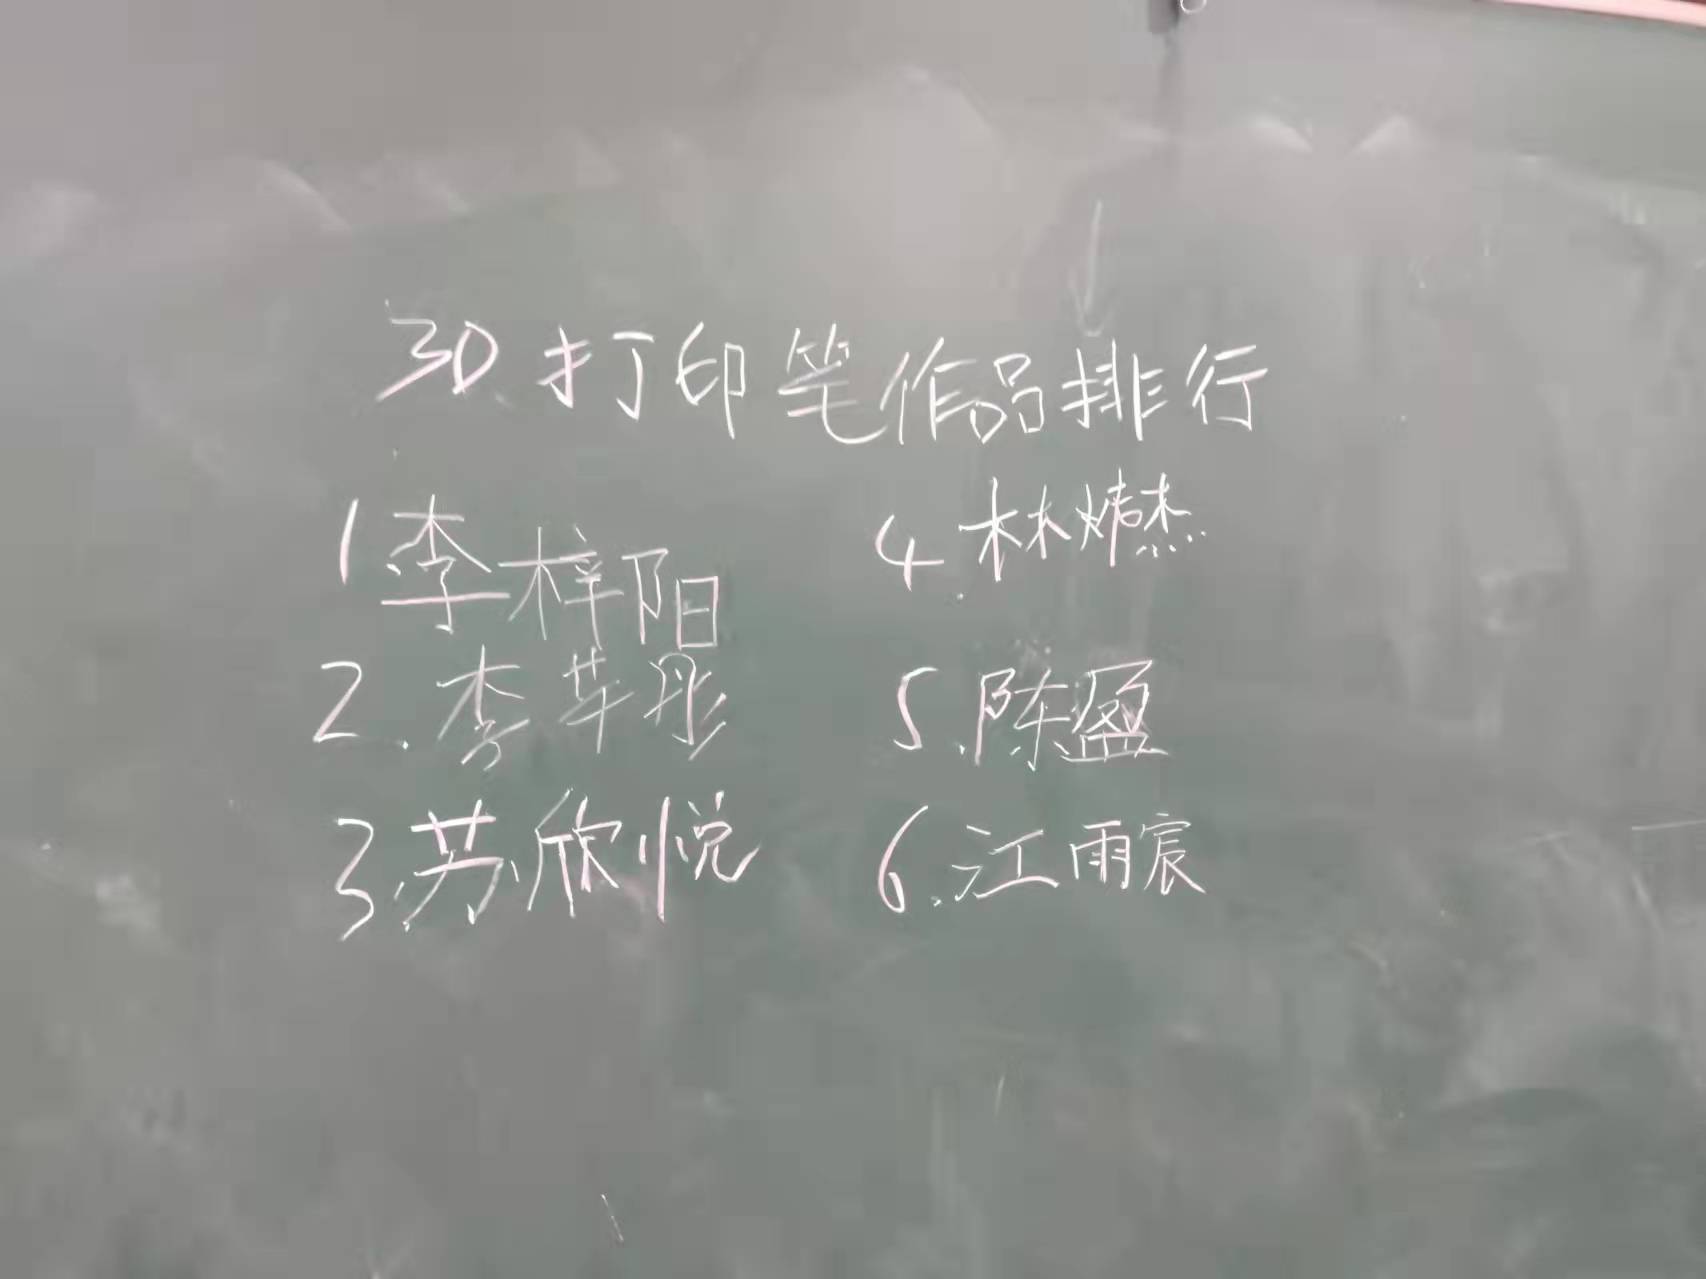 3D打印笔作品排行
1 李梓阳
2.李芊彤
3.苏欣悦
4.林炜杰
5.陈盈
6.江雨宸